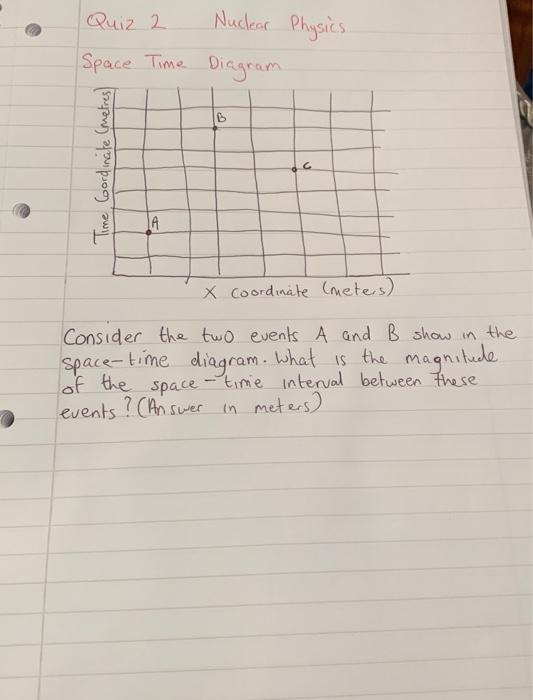 Quiz 2 Nuclear Physics
Space Time Diagram
Time Coordinate (metres)
B
C
A
X Coordinate (meters)
Consider the two events A and B show in the
space-time diagram. What is the magnitude
of the space-time interval between these
events? (Answer in meters)